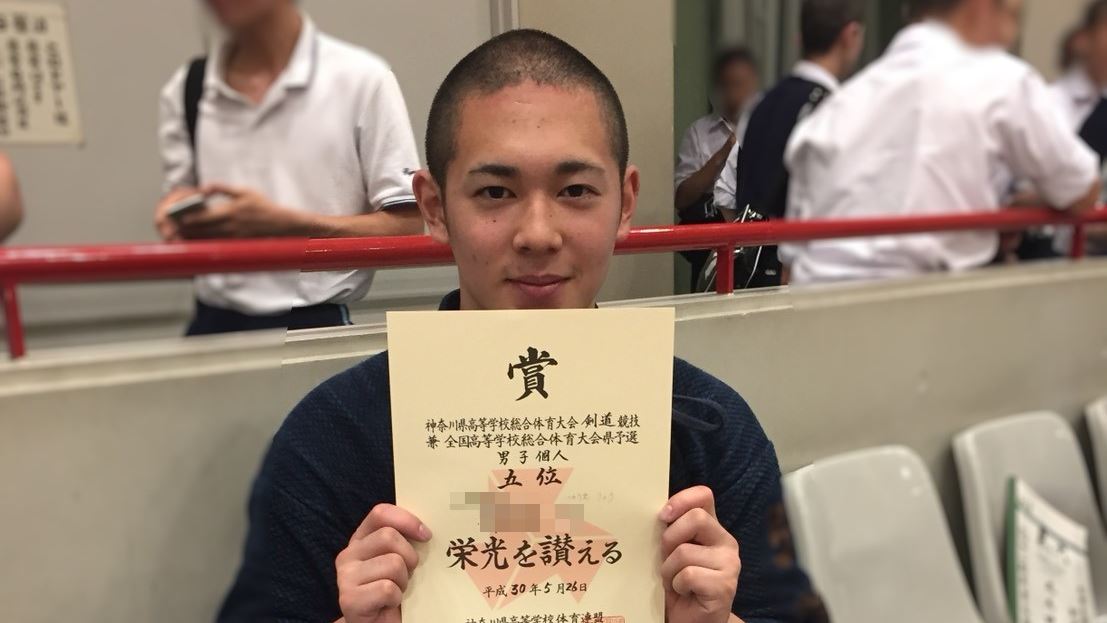 賞
神奈川県高等学校総合体育大会 剣道 競技
兼 全国高等学校総合体育大会県予選
男子個人
五位
栄光を讃える
平成30年5月26日
神奈川県高等学校体育連盟